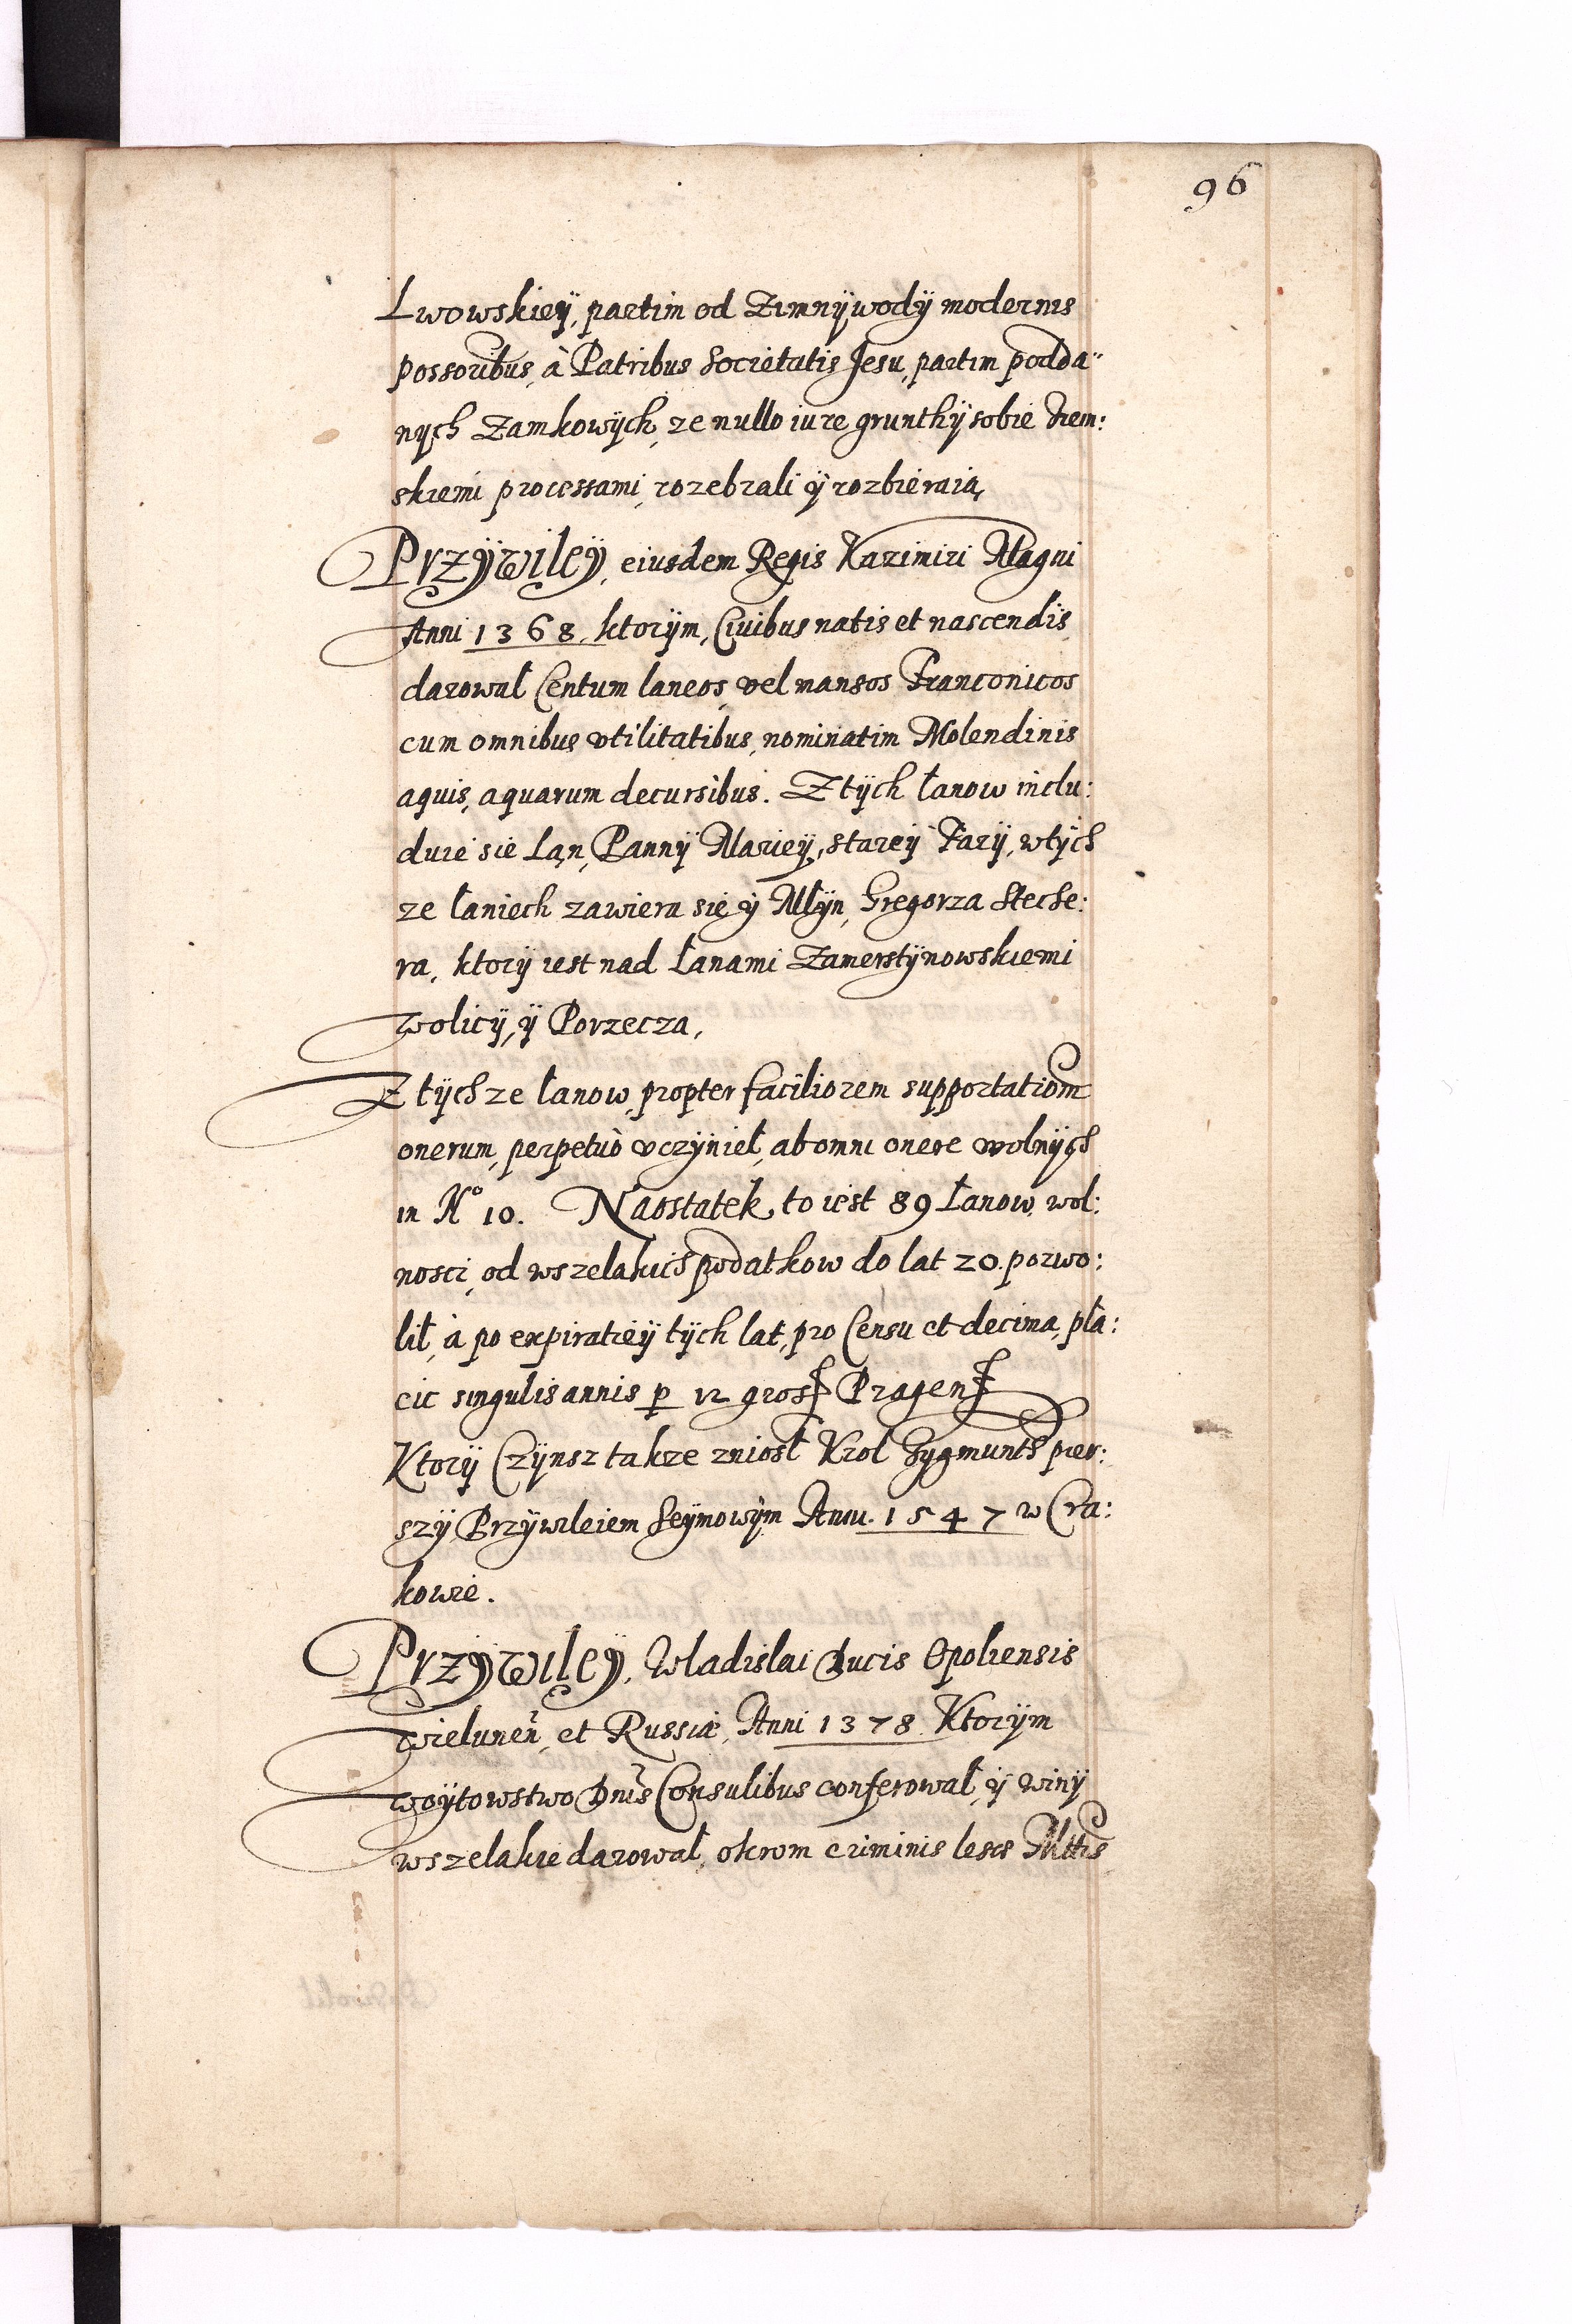 96
Lwowskieÿ, partim od Zimnÿwodÿ modernis
possoribus, à Patribus Societatis Jesu, partim podda¨
nÿch Zamkowÿch, ze nullo iure grunthÿ sobie Ziem:
skiemi processami, rozebrali ÿ rozbieraią,
Przÿwileÿ, eiusdem Regis Kazimiri Magni
Anni 1368, ktorÿm, Ciuibus natis et nascendis
darował Centum laneos, vel mansos Franconicos
cum omnibus vtilitatibus, nominatim Molendinis
aquis, aquarum decursibus. Z tÿch łanow inclu:
duie sie Łan, Pannÿ Marieÿ, stareÿ Farÿ, w tÿch
ze łaniech zawiera się ÿ Młÿn, Gregorza Steche:
ra, ktorÿ iest nad Łanami Zamerstÿnowskiemi
wolicÿ, ÿ Porzecza,
Z tÿch ze łanow, propter faciliorem supportationem
onerum, perpetuò vczÿnieł, ab omni onere wolnÿch
in No 10. Naostatek to iest 89 Łanow, wol:
nosci, od wszelakich podatkow do lat 20. pozwo:
lił, à po expiratieÿ tÿch lat, pro Censu et decima, pła:
cic singulis annis p 12 gross Pragens
Ktorÿ Czÿnsz takze zniosł Krol Zygmunth pier:
szÿ Przÿwileiem Seÿmowÿm Anni. 1547 w Cra:
kowie.
Przÿwileÿ, Wladislai Ducis Opoliensis
Wielunen, et Russiæ, Anni 1378 Ktorÿm
woÿtowstwo Dnis Consulibus conferował, ÿ winÿ
wszelakie darował, okrom criminis lesæ Mttis